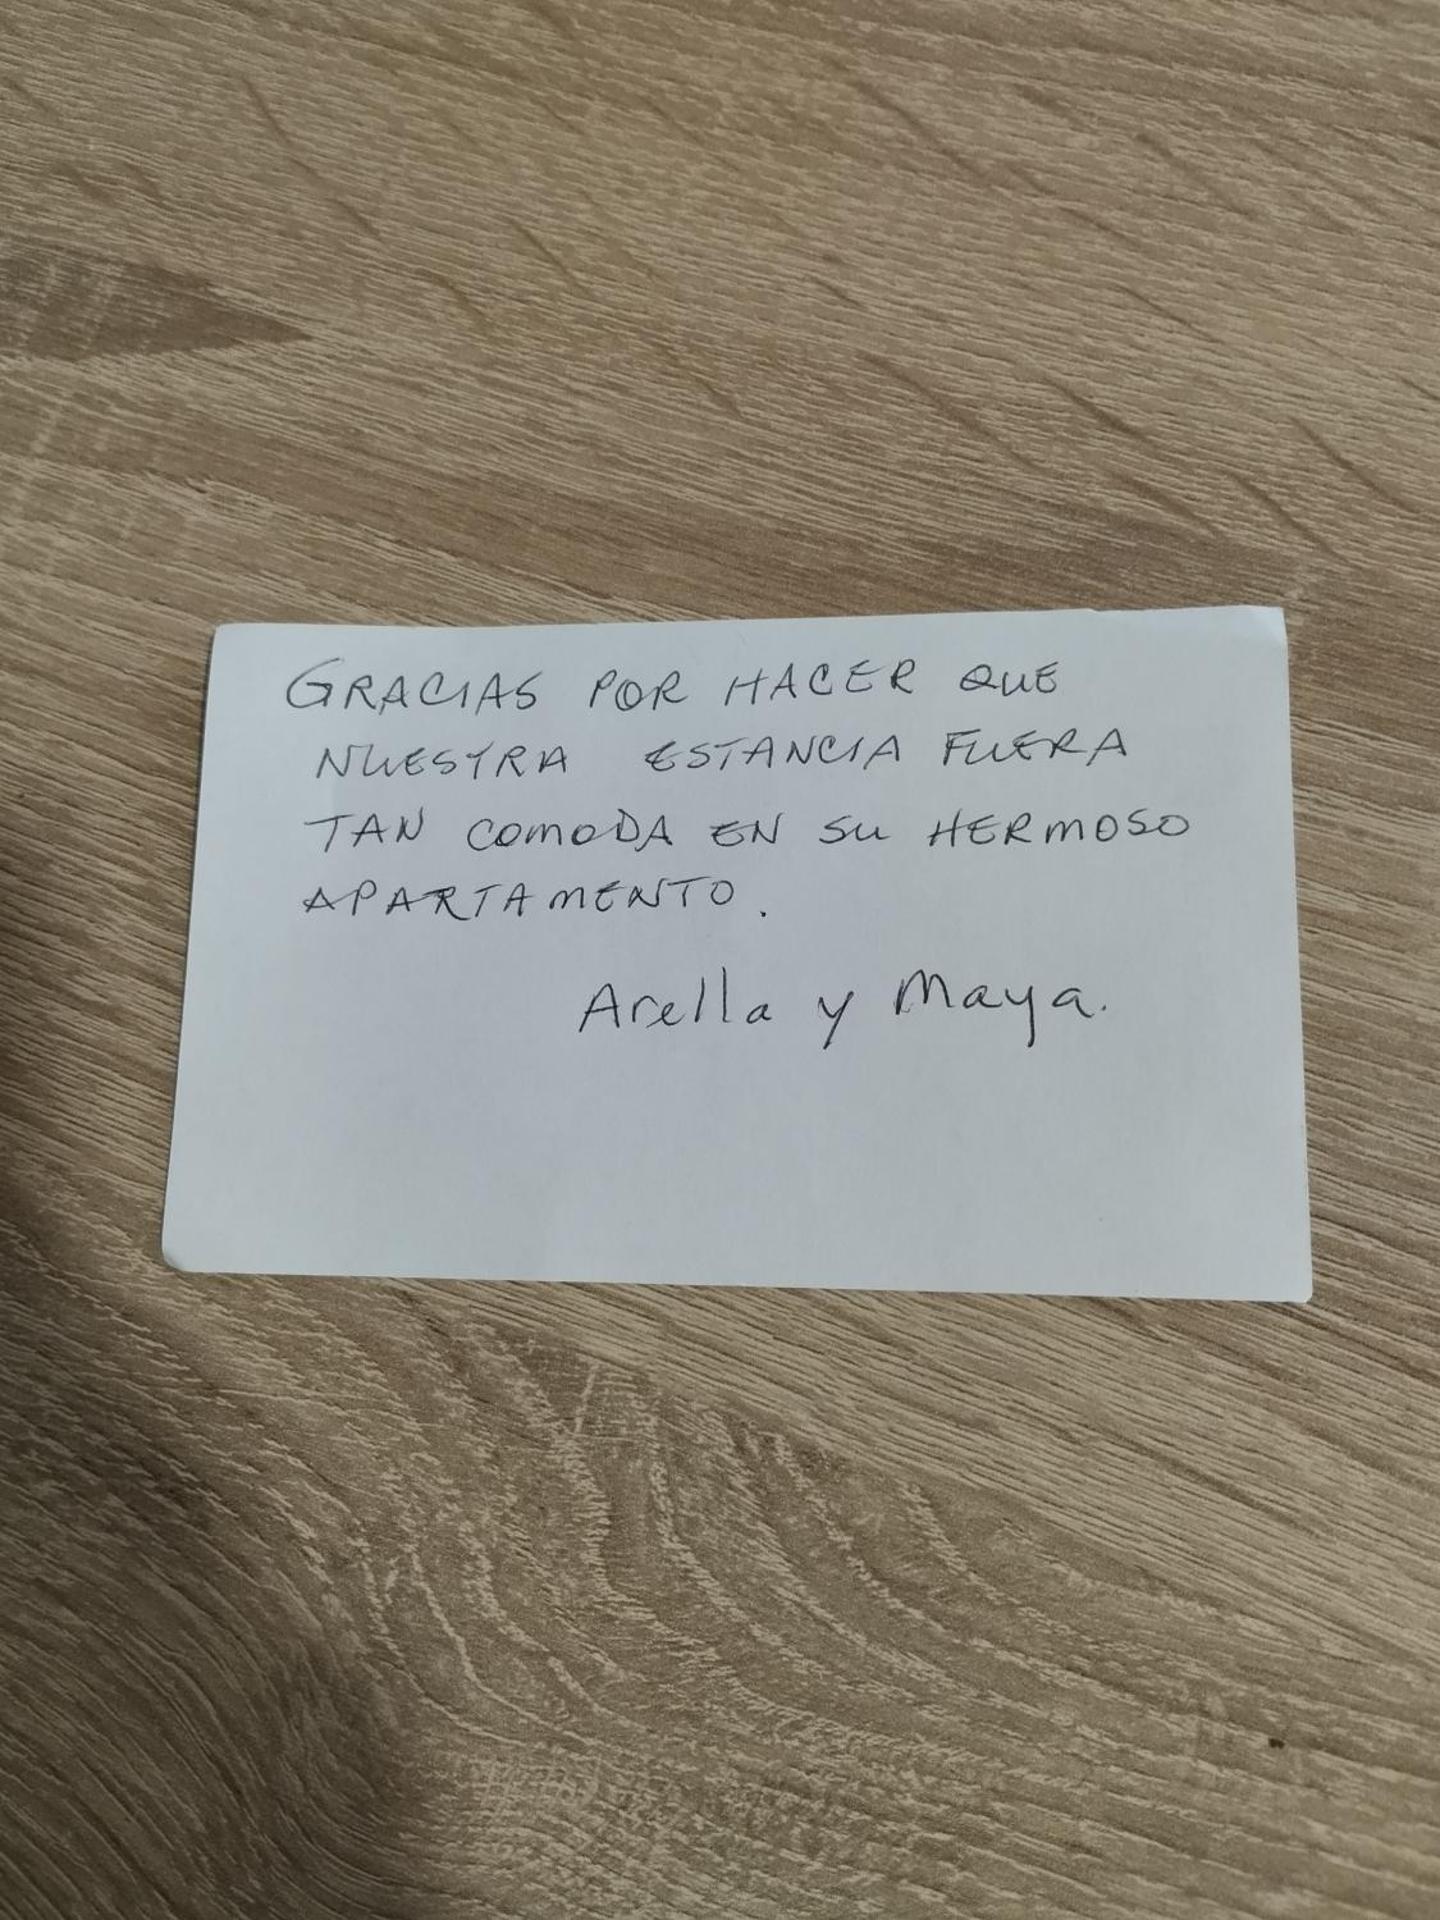 GRACIAS POR HACER QUE
NUESTRA ESTANCIA FUERA
TAN COMODA EN SU HERMOSO
APARTAMENTO.
Arella y Maya.